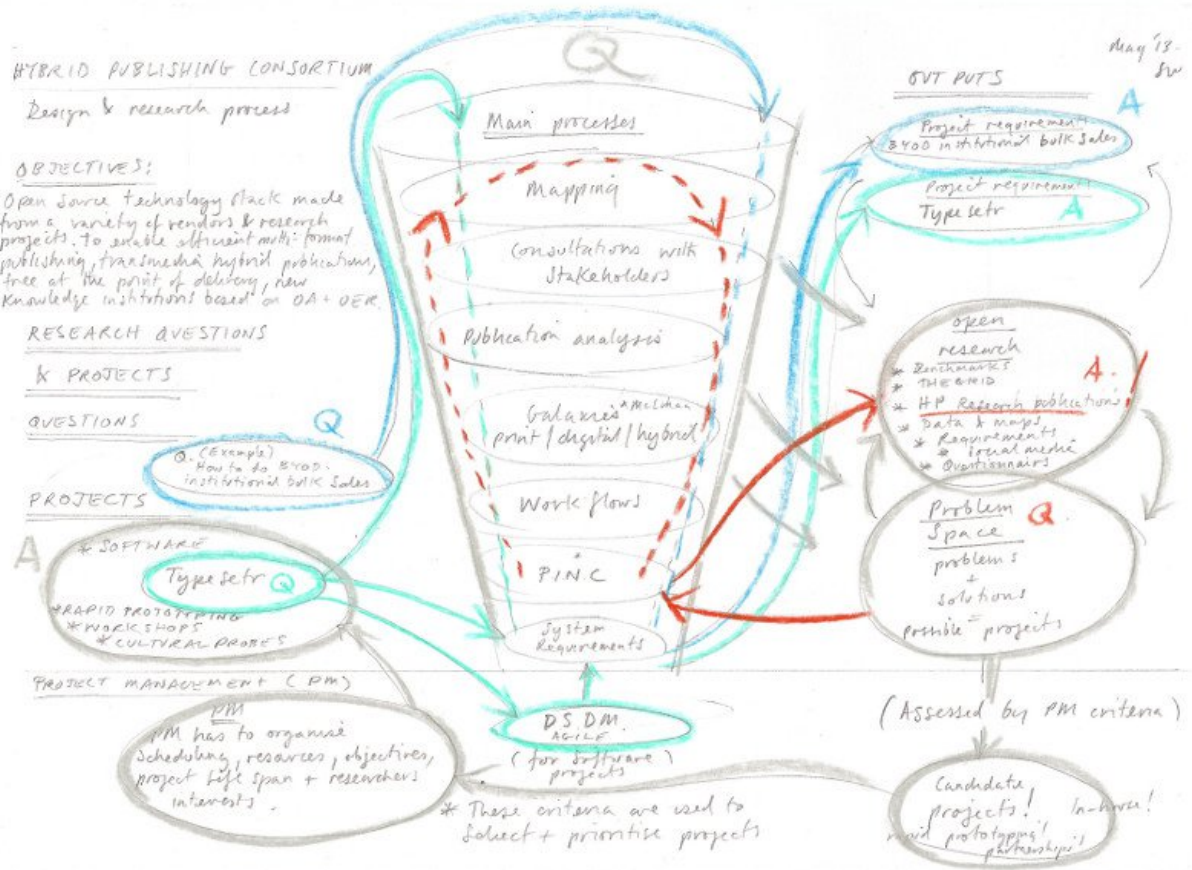 HYBRID PUBLISHING CONSORTIUM
Design & research process
OBJECTIVES:
Open Source technology stack made
from a variety of vendors & research
projects. To enable efficient multi-format
publishing, transmedia hybrid publication,
free at the point of delivery, new
knowledge institutions based on OA + OER
RESEARCH QUESTIONS
& PROJECTS
QUESTIONS
Q
Q. (Example)
How to do BYOD.
institutional bulk Sales
PROJECTS
A
* SOFTWARE
Typesetr Q
* RAPID PROTOTYPING
* WORKSHOPS
* CULTURAL PROBES
PROJECT MANAGEMENT (PM)
PM
PM has to organise
scheduling, resources, objectives,
project life span + researchers
interests.
Q
Main processes
Mapping
Consultations with
Stakeholders
Publication analysis
Galaxies
print / digital / hybrid
Work flows
P.I.N.C
System
Requirements
DSDM
AGILE
(for software)
projects
* These criteria are used to
Select + prioritise projects
May '13-
SW
OUTPUTS
A
Project requirement
BYOD institutional bulk Sales
Project requirement
Typesetr A
open
research
* Benchmarks
* THE GRID
A.
* HP Research publications
* Data & maps
* Requirements
* Social media
* Questionnairs
Problem Q.
Space
problems
+
solutions
=
possible projects
(Assessed by PM criteria)
Candidate
projects! In-house!
rapid prototyping!
partnerships!